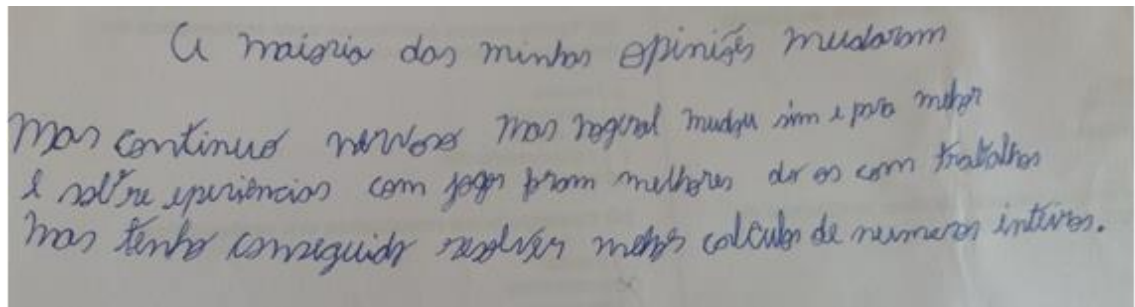 A maioria das minhas opiniões mudaram
Mas continuo nervoso mas nogeral mudou sim e para melhor
e sobre eperiências com jogos foram melhores do os com trabalhos
mas tenho conseguido resolver melhor calculos de numeros inteiros.